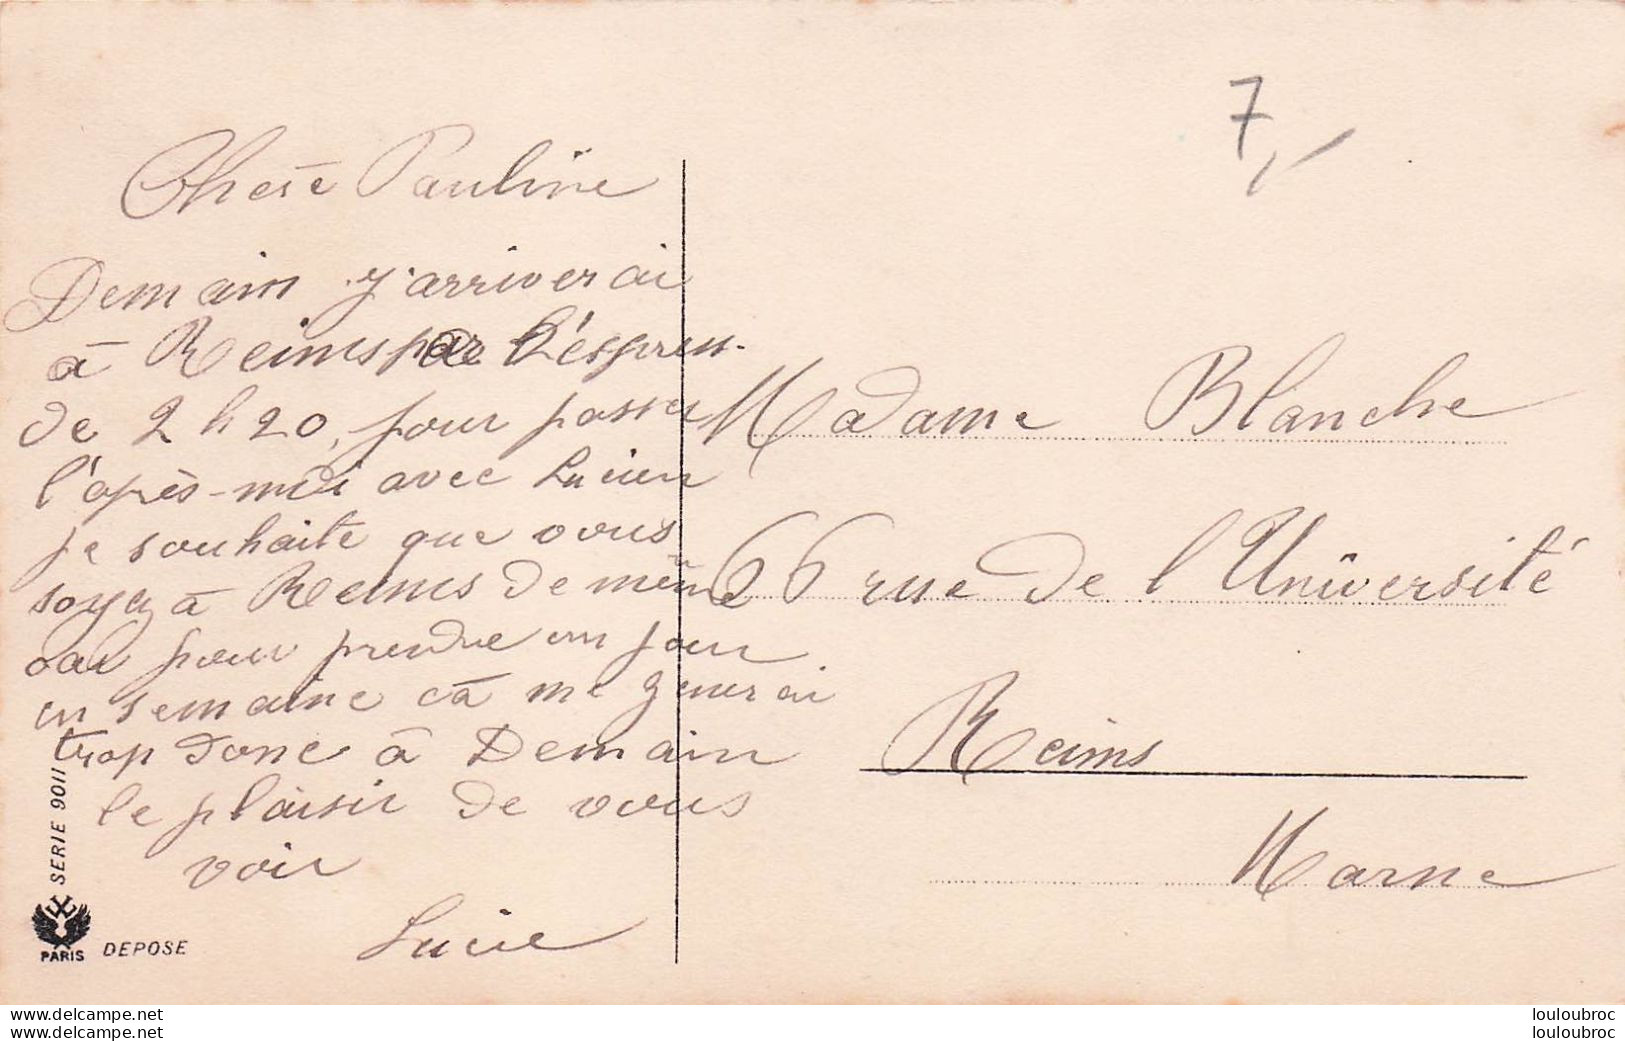 7,-
Chère Pauline
Demain j'arriverai
à Reims par l'express.
de 2 h 20, pour passer
l'après-midi avec Lucien
je souhaite que vous
soyez à Reims de même
car pour prendre un jour
en semaine cà me generai
trop donc à Demain
le plaisir de vous
voir
Lucie
Madame Blanche
66 rue de l Université
Reims
Marne
SERIE 9011
PARIS DEPOSE
www.delcampe.net
www.delcampe.net
louloubroc
louloubroc